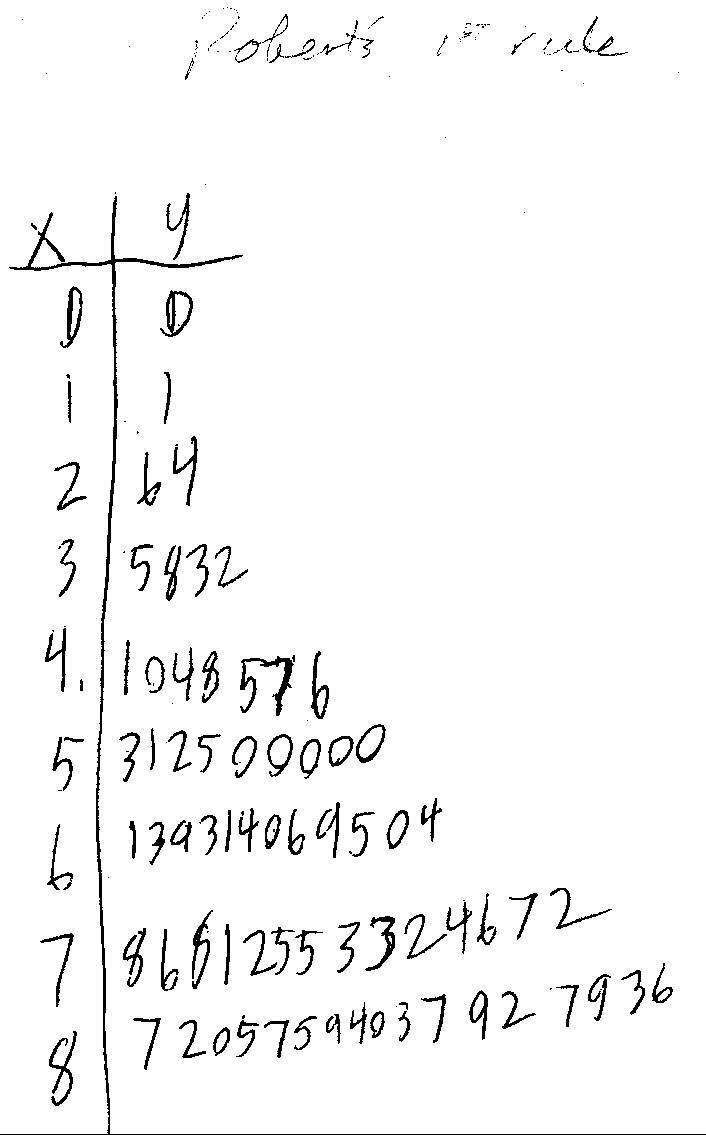 Robert's 1st rule
x y
0 0
1 1
2 64
3 5832
4. 1048576
5 312500000
6 139314069504
7 86812553324672
8 72057594037927936